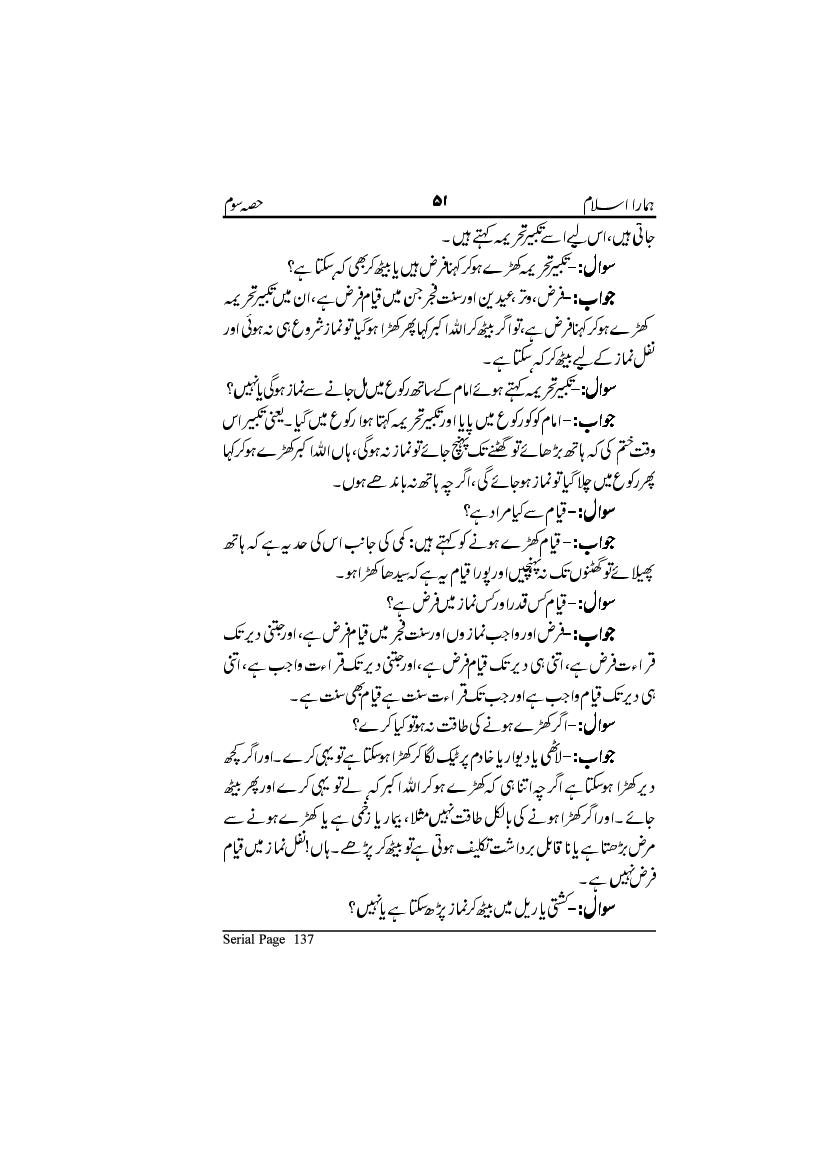 ہمارا اسلام ۵۱ حصہ سوم
جاتی ہیں، اس لیے اسے تکبیر تحریمہ کہتے ہیں۔
سوال:- تکبیر تحریمہ کھڑے ہوکر کہنا فرض ہیں یا بیٹھ کر بھی کہہ سکتا ہے؟
جواب:- فرض، وتر، عیدین اور سنت فجر جن میں قیام فرض ہے، ان میں تکبیر تحریمہ
کھڑے ہوکر کہنا فرض ہے، تو اگر بیٹھ کر اللہ اکبر کہا پھر کھڑا ہوگیا تو نماز شروع ہی نہ ہوئی اور
نفل نماز کے لیے بیٹھ کر کہہ سکتا ہے۔
سوال:- تکبیر تحریمہ کہتے ہوئے امام کے ساتھ رکوع میں مل جانے سے نماز ہوگی یا نہیں؟
جواب:- امام کو کو رکوع میں پایا اور تکبیر تحریمہ کہتا ہوا رکوع میں گیا۔ یعنی تکبیر اس
وقت ختم کی کہ ہاتھ بڑھائے تو گھٹنے تک پہنچ جائے تو نماز نہ ہوگی، ہاں اللہ اکبر کھڑے ہوکر کہا
پھر رکوع میں چلا گیا تو نماز ہوجائے گی، اگر چہ ہاتھ نہ باندھے ہوں۔
سوال:- قیام سے کیا مراد ہے؟
جواب:- قیام کھڑے ہونے کو کہتے ہیں: کمی کی جانب اس کی حد یہ ہے کہ ہاتھ
پھیلائے تو گھٹنوں تک نہ پہنچیں اور پورا قیام یہ ہے کہ سیدھا کھڑا ہو۔
سوال:- قیام کس قدر اور کس نماز میں فرض ہے؟
جواب:- فرض اور واجب نمازوں اور سنت فجر میں قیام فرض ہے، اور جتنی دیر تک
قراءت فرض ہے، اتنی ہی دیر تک قیام فرض ہے، اور جتنی دیر تک قراءت واجب ہے، اتنی
ہی دیر تک قیام واجب ہے اور جب تک قراءت سنت ہے قیام بھی سنت ہے۔
سوال:- اگر کھڑے ہونے کی طاقت نہ ہو تو کیا کرے؟
جواب:- لاٹھی یا دیوار یا خادم پر ٹیک لگا کر کھڑا ہوسکتا ہے تو یہی کرے۔ اور اگر کچھ
دیر کھڑا ہوسکتا ہے اگر چہ اتنا ہی کہ کھڑے ہوکر اللہ اکبر کہہ لے تو یہی کرے اور پھر بیٹھ
جائے۔ اور اگر کھڑا ہونے کی بالکل طاقت نہیں مثلا، بیمار یا زخمی ہے یا کھڑے ہونے سے
مرض بڑھتا ہے یا نا قابل برداشت تکلیف ہوتی ہے تو بیٹھ کر پڑھے۔ ہاں! نفل نماز میں قیام
فرض نہیں ہے۔
سوال:- کشتی یا ریل میں بیٹھ کر نماز پڑھ سکتا ہے یا نہیں؟
Serial Page 137